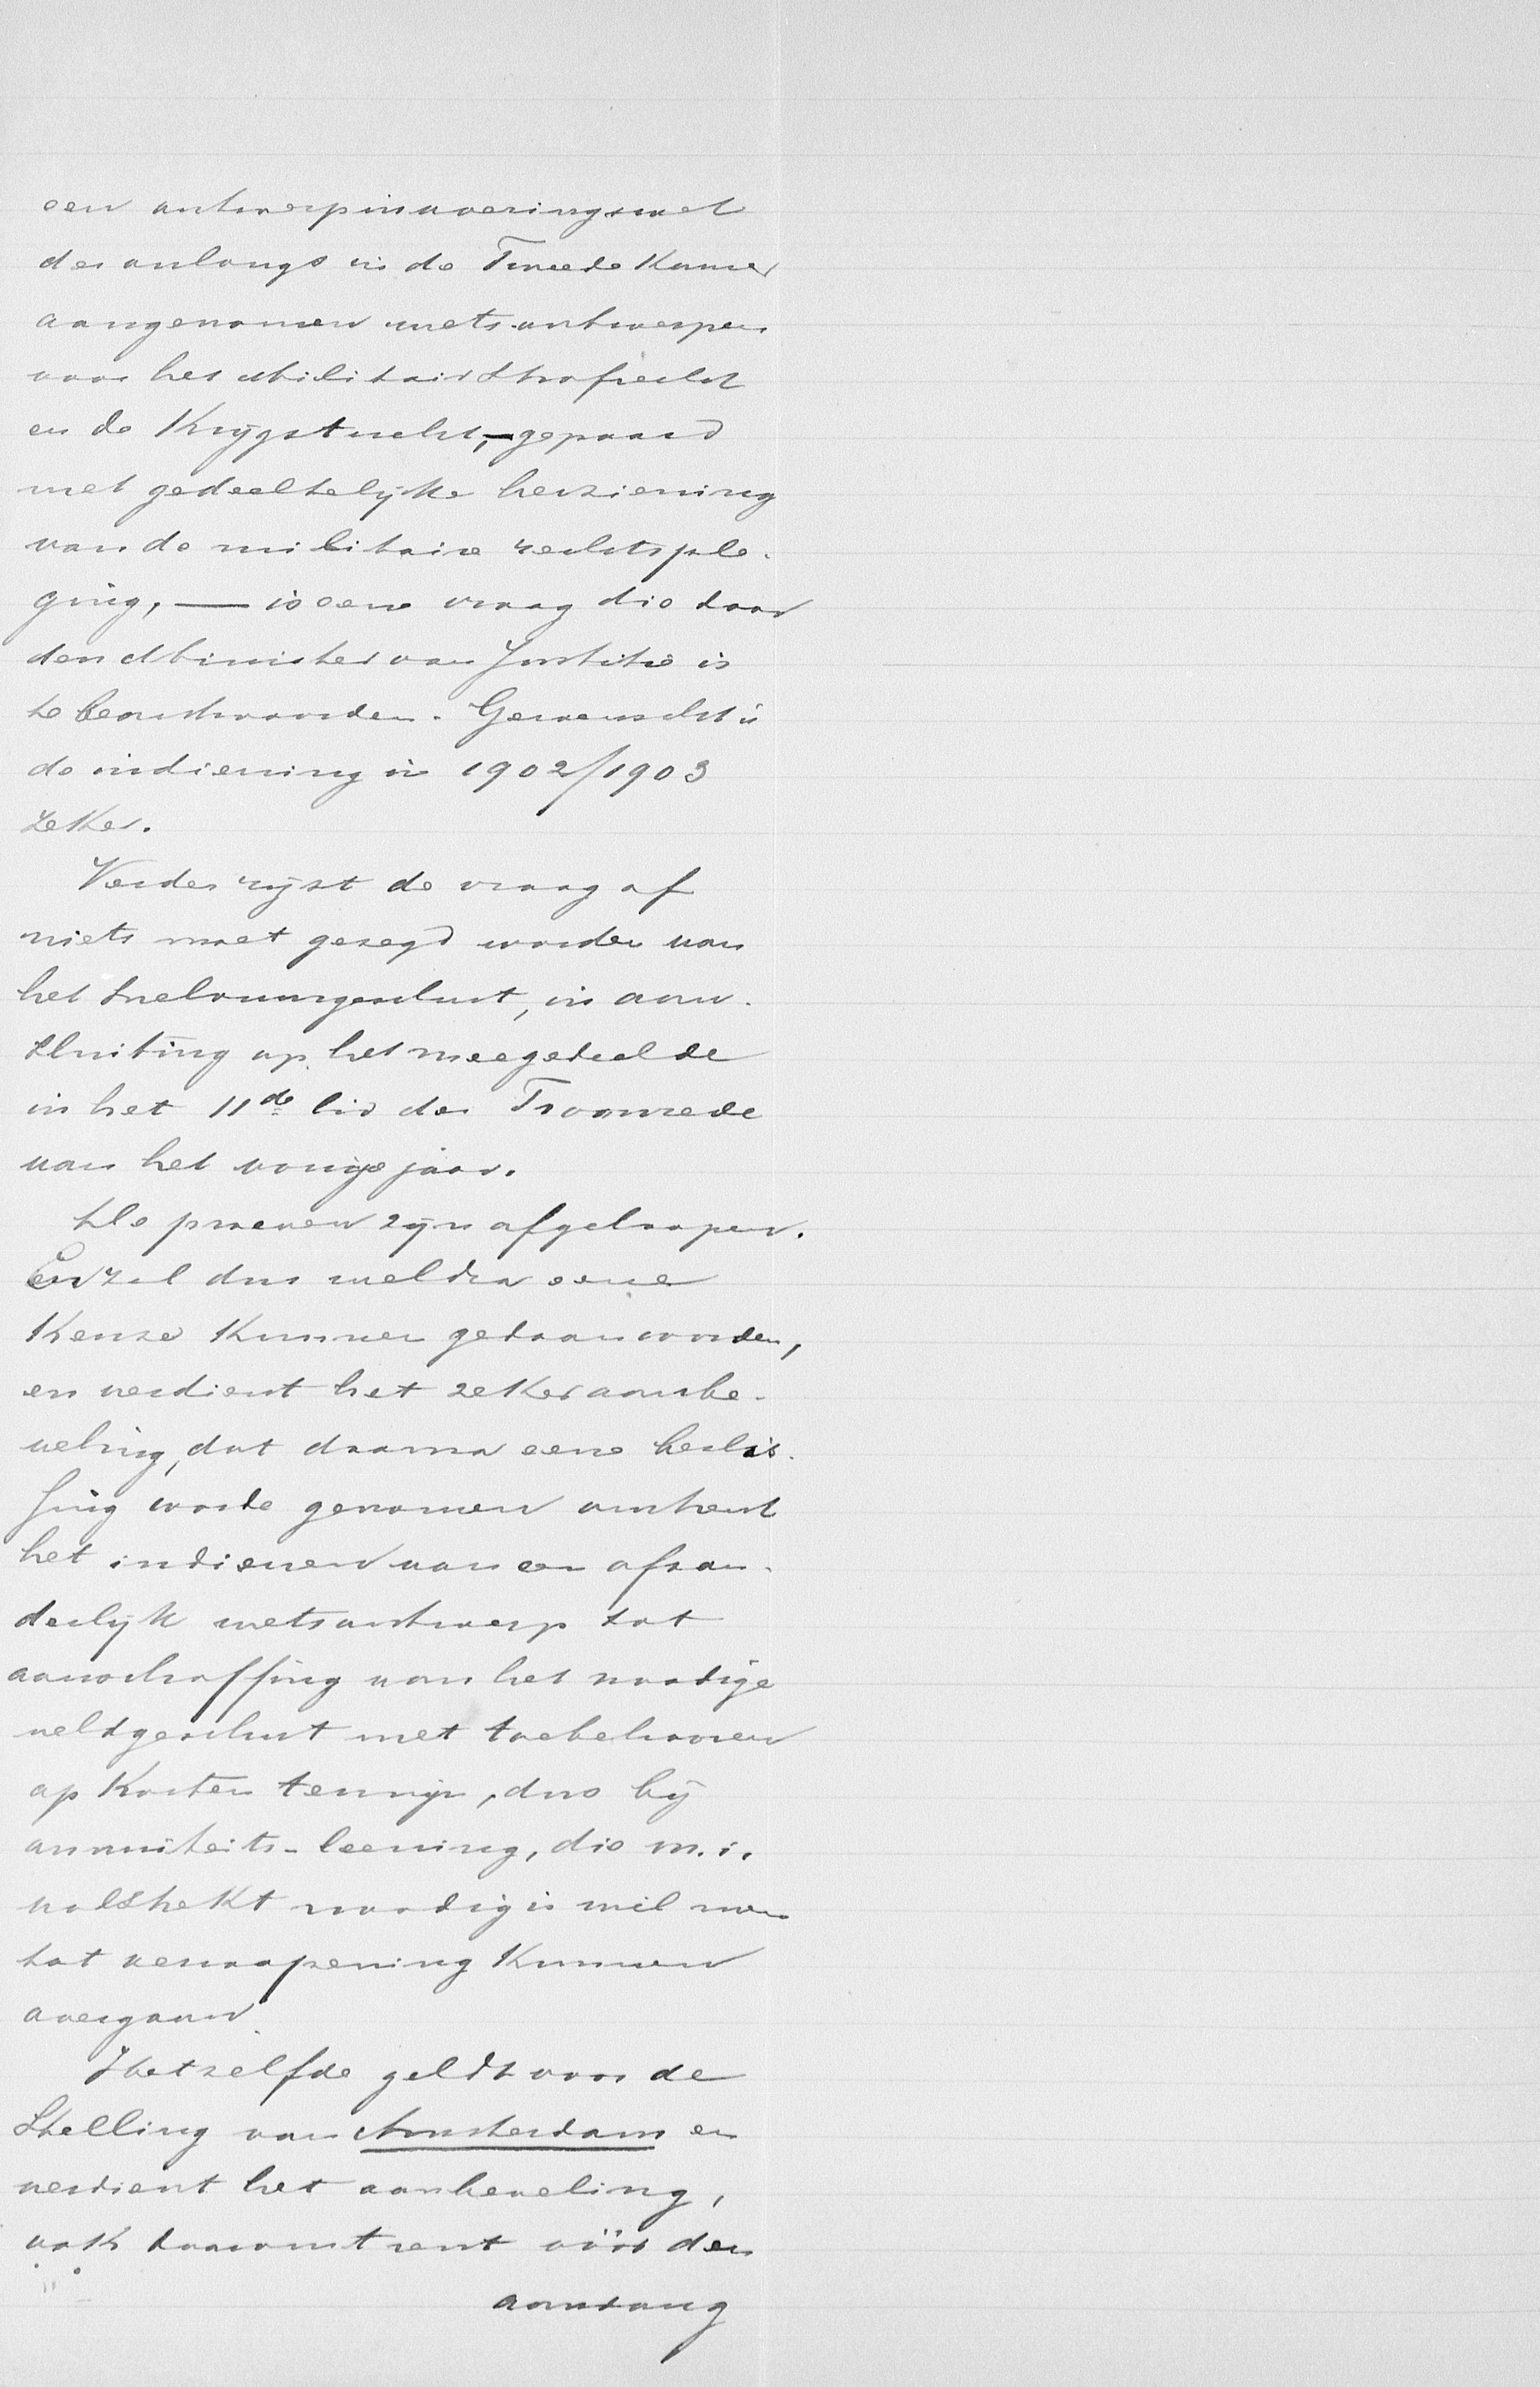 een ontwerpinvoeringswet
der onlangs in de Tweede Kamer
aangenomen wetsontwerpen
voor het Militair Strafrecht
en de Krijgstucht, — gepaard
met gedeeltelijke herziening
van de militaire rechtsple-
ging, — is eene vraag die door
den Minister van Justitie is
te beantwoorden. Gewenscht is
de indiening in 1902/1903
zeker.
Verder rijst de vraag of
niets moet gezegd worden van
het snelvuurgeschut, in aan-
sluiting op het meegedeelde
in het 11de lid der Troonrede
van het vorige jaar.
De proeven zijn afgeloopen.
Er zal dus weldra eene
Keuze kunnen gedaan worden,
en verdient het zeker aanbe-
veling, dat daarna eene beslis-
sing worde genomen omtrent
het indienen van een afzon-
derlijk wetsontwerp tot
aanschaffing van het noodige
veldgeschut met toebehooren
op korten termijn, dus bij
annuiteits-leening, die m.i.
volstrekt noodig is wil men
tot verwapening kunnen
overgaan.
Hetzelfde geldt voor de
Stelling van Amsterdam en
verdient het aanbeveling,
ook daaromtrent vóór den
aanvang